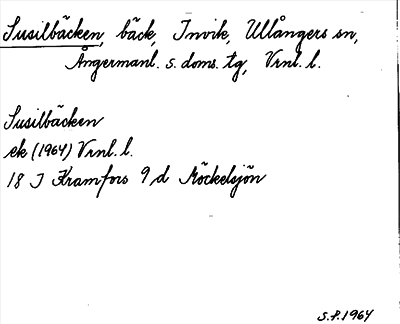 Susilbäcken, bäck, Invik, Ullångers sn,
Ångermanl. s. doms. tg, Vrnl. l.
Susilbäcken
ek (1964) Vrnl. l.
18 J Kramfors 9 d Möckelsjön
S.P. 1964